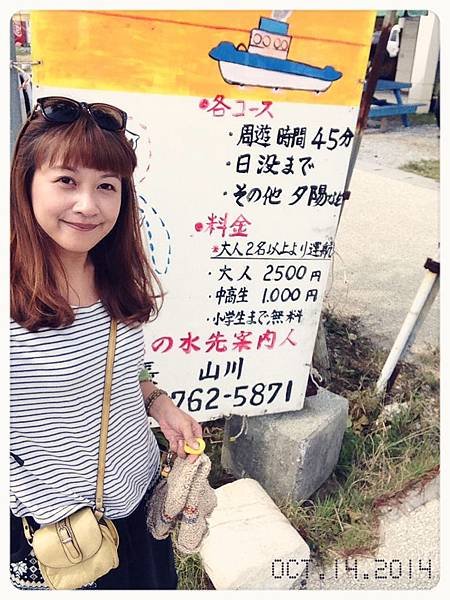 ●各コース
・周遊時間45分
・日没まで
・その他 夕陽
●料金
*大人2名以上より運航
・大人 2500円
・中高生 1.000円
・小学生まで無料
の水先案内人
長 山川
762-5871
OCT.14.2014